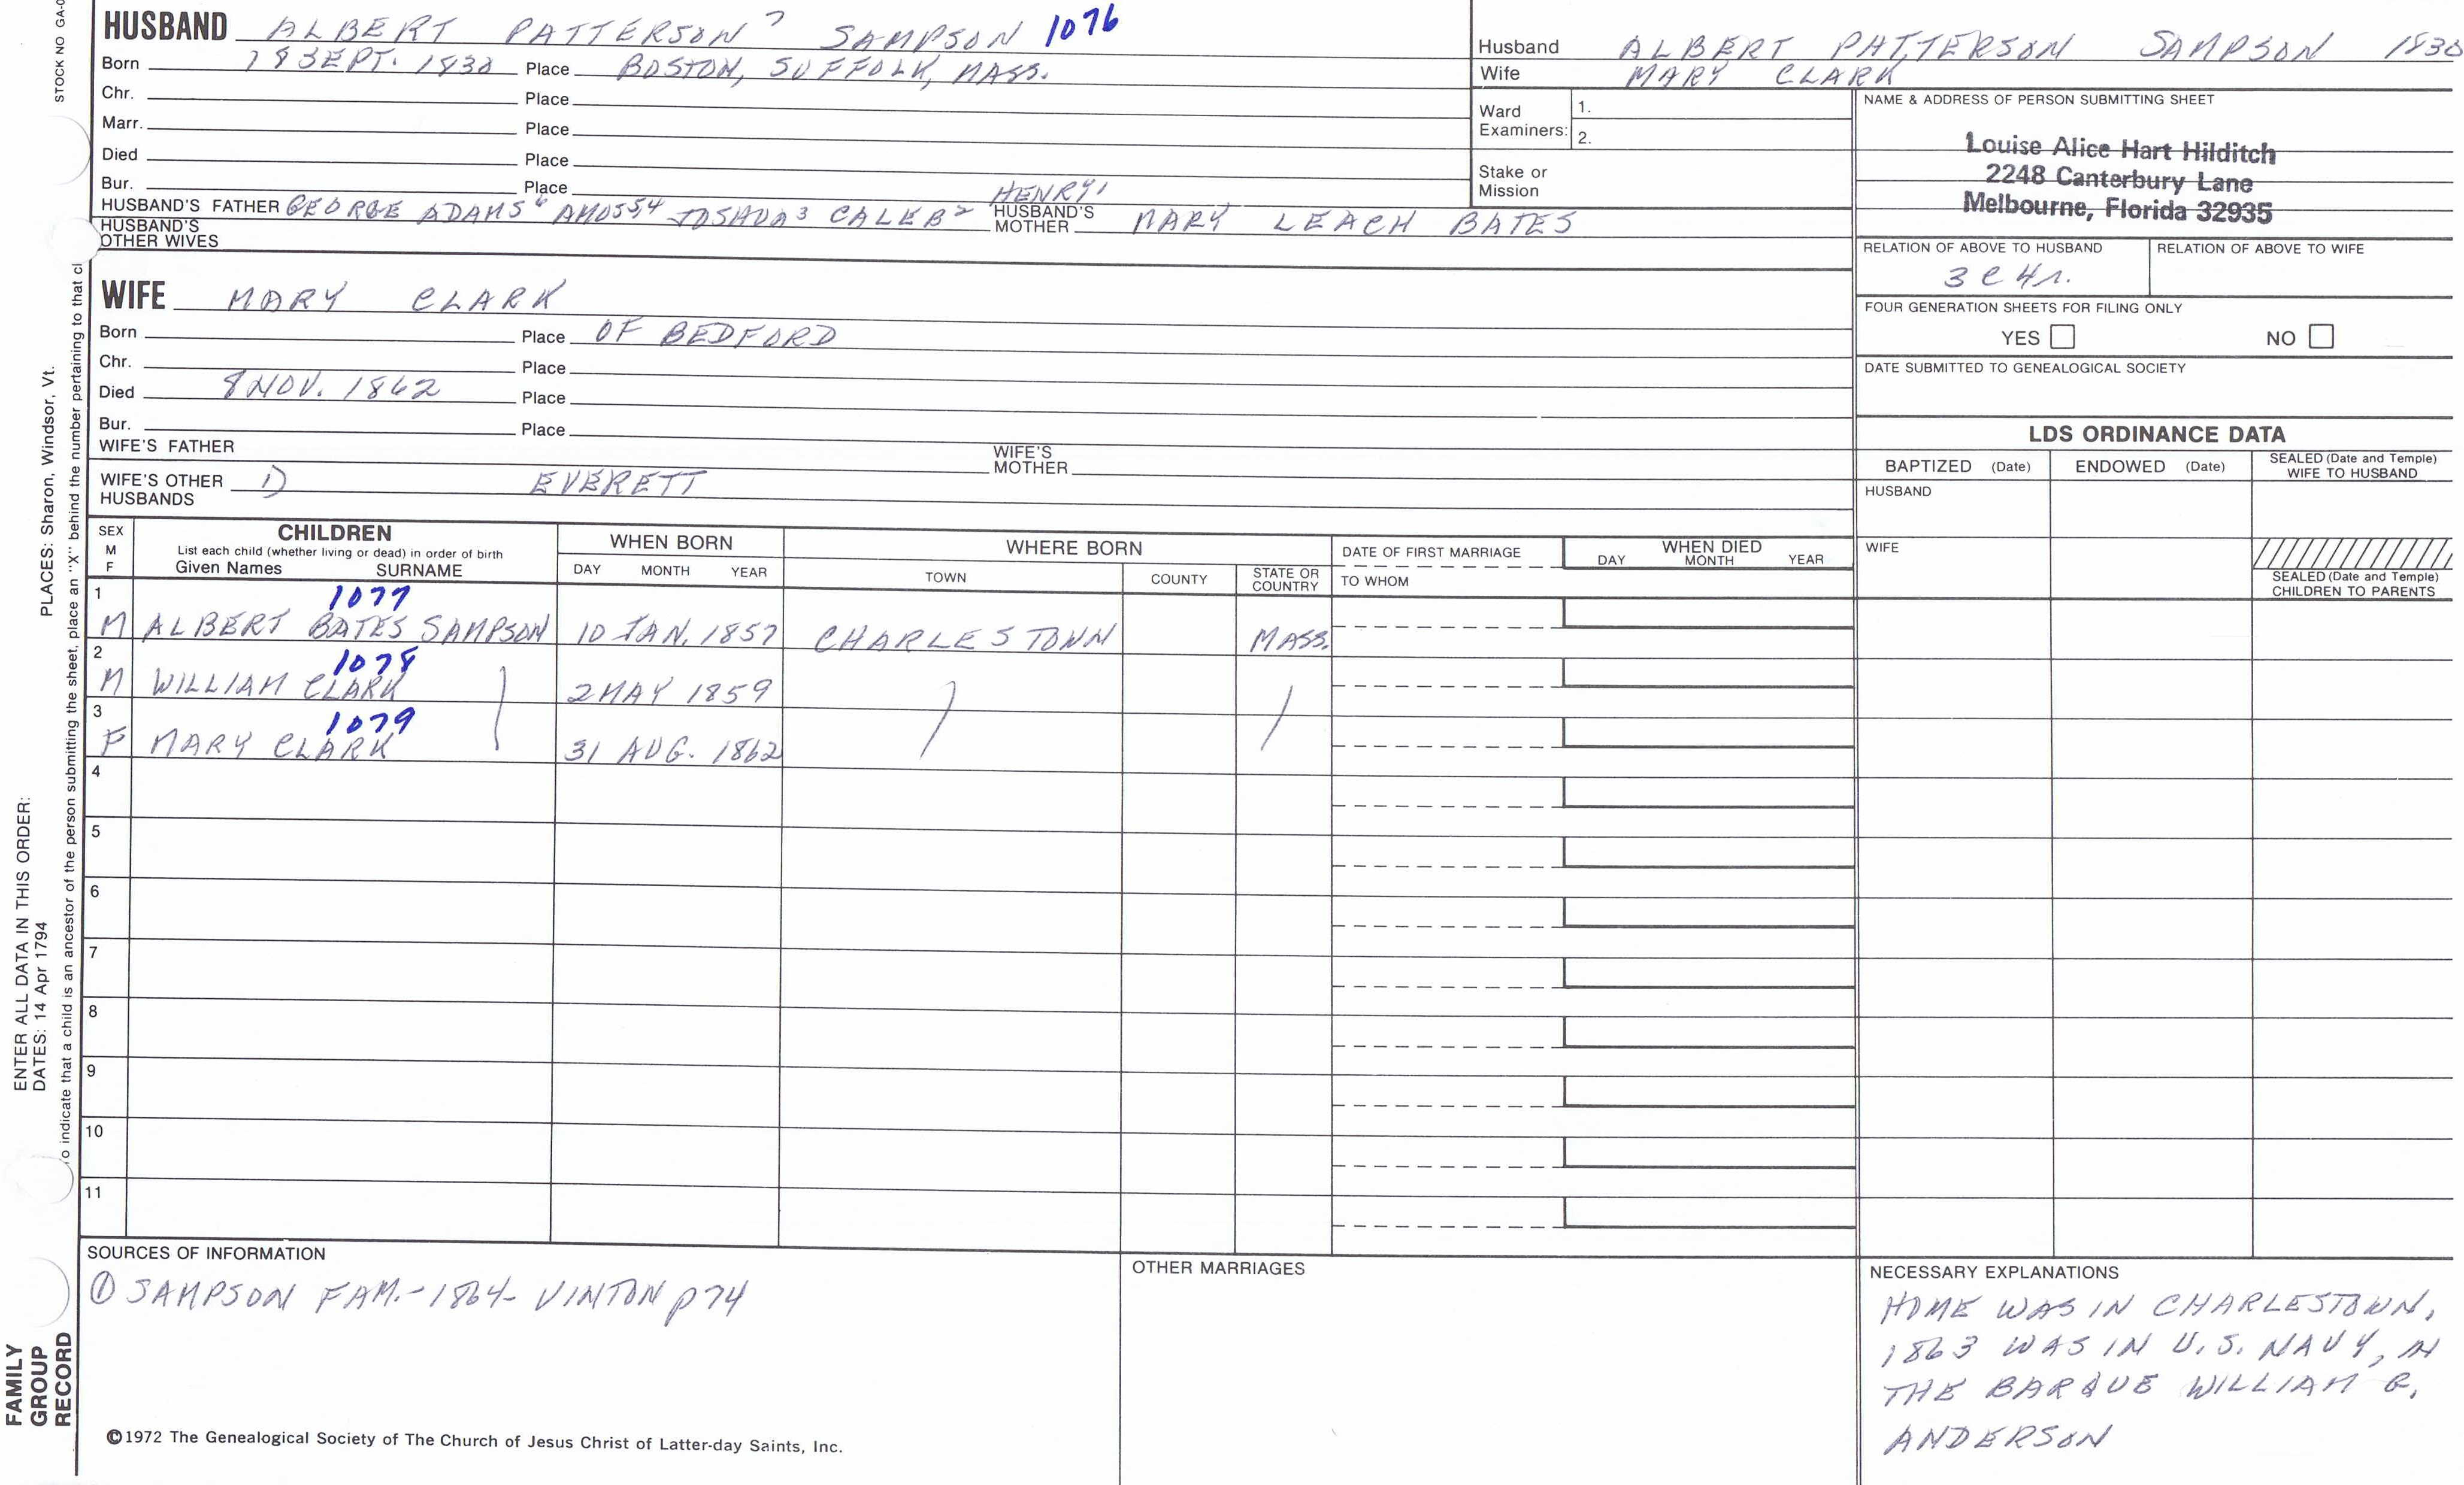 STOCK NO GA-0
HUSBAND ALBERT PATTERSON 7 SAMPSON 1076
Born 18 SEPT. 1830 Place BOSTON, SUFFOLK, MASS.
Chr. Place
Marr. Place
Died Place
Bur. Place
HENRY 1
HUSBAND'S FATHER GEORGE ADAMS 6 AMOS 5,4 JOSHUA 3 CALEB 2 HUSBAND'S MOTHER MARY LEACH BATES
HUSBAND'S OTHER WIVES
Husband ALBERT PATTERSON SAMPSON 1830
Wife MARY CLARK
Ward Examiners: 1.
2.
Stake or Mission
NAME & ADDRESS OF PERSON SUBMITTING SHEET
Louise Alice Hart Hilditch
2248 Canterbury Lane
Melbourne, Florida 32935
RELATION OF ABOVE TO HUSBAND RELATION OF ABOVE TO WIFE
3 C 4 r.
FOUR GENERATION SHEETS FOR FILING ONLY
YES NO
DATE SUBMITTED TO GENEALOGICAL SOCIETY
WIFE MARY CLARK
Born Place OF BEDFORD
Chr. Place
Died 8 NOV. 1862 Place
Bur. Place
WIFE'S FATHER WIFE'S MOTHER
WIFE'S OTHER HUSBANDS 1) EVERETT
LDS ORDINANCE DATA
BAPTIZED (Date) ENDOWED (Date) SEALED (Date and Temple) WIFE TO HUSBAND
HUSBAND
WIFE
SEALED (Date and Temple) CHILDREN TO PARENTS
SEX M F CHILDREN WHEN BORN WHERE BORN DATE OF FIRST MARRIAGE WHEN DIED
List each child (whether living or dead) in order of birth
Given Names SURNAME DAY MONTH YEAR TOWN COUNTY STATE OR COUNTRY TO WHOM DAY MONTH YEAR
1 1077
M ALBERT BATES SAMPSON 10 JAN. 1857 CHARLESTOWN MASS.
2 1078
M WILLIAM CLARK 2 MAY 1859
3 1079
F MARY CLARK 31 AUG. 1862
4
5
6
7
8
9
10
11
SOURCES OF INFORMATION
① SAMPSON FAM.-1864- VINTON p74
OTHER MARRIAGES
NECESSARY EXPLANATIONS
HOME WAS IN CHARLESTOWN,
1863 WAS IN U.S. NAVY, IN
THE BARQUE WILLIAM G.
ANDERSON
©1972 The Genealogical Society of The Church of Jesus Christ of Latter-day Saints, Inc.
FAMILY
GROUP
RECORD
ENTER ALL DATA IN THIS ORDER:
DATES: 14 Apr 1794
PLACES: Sharon, Windsor, Vt.
To indicate that a child is an ancestor of the person submitting the sheet, place an "X" behind the number pertaining to that cl